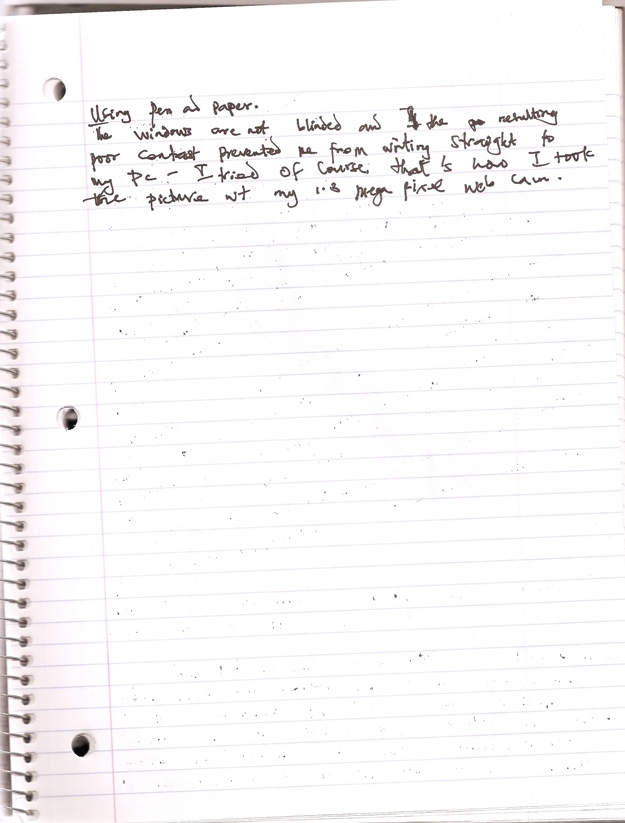 Using Pen ad paper.
The windows are not blinded and the resulting
poor contrast prevented me from writing straight to
my PC - I tried of course. that's how I took
the picture wt my 1.3 mega pixel web cam.